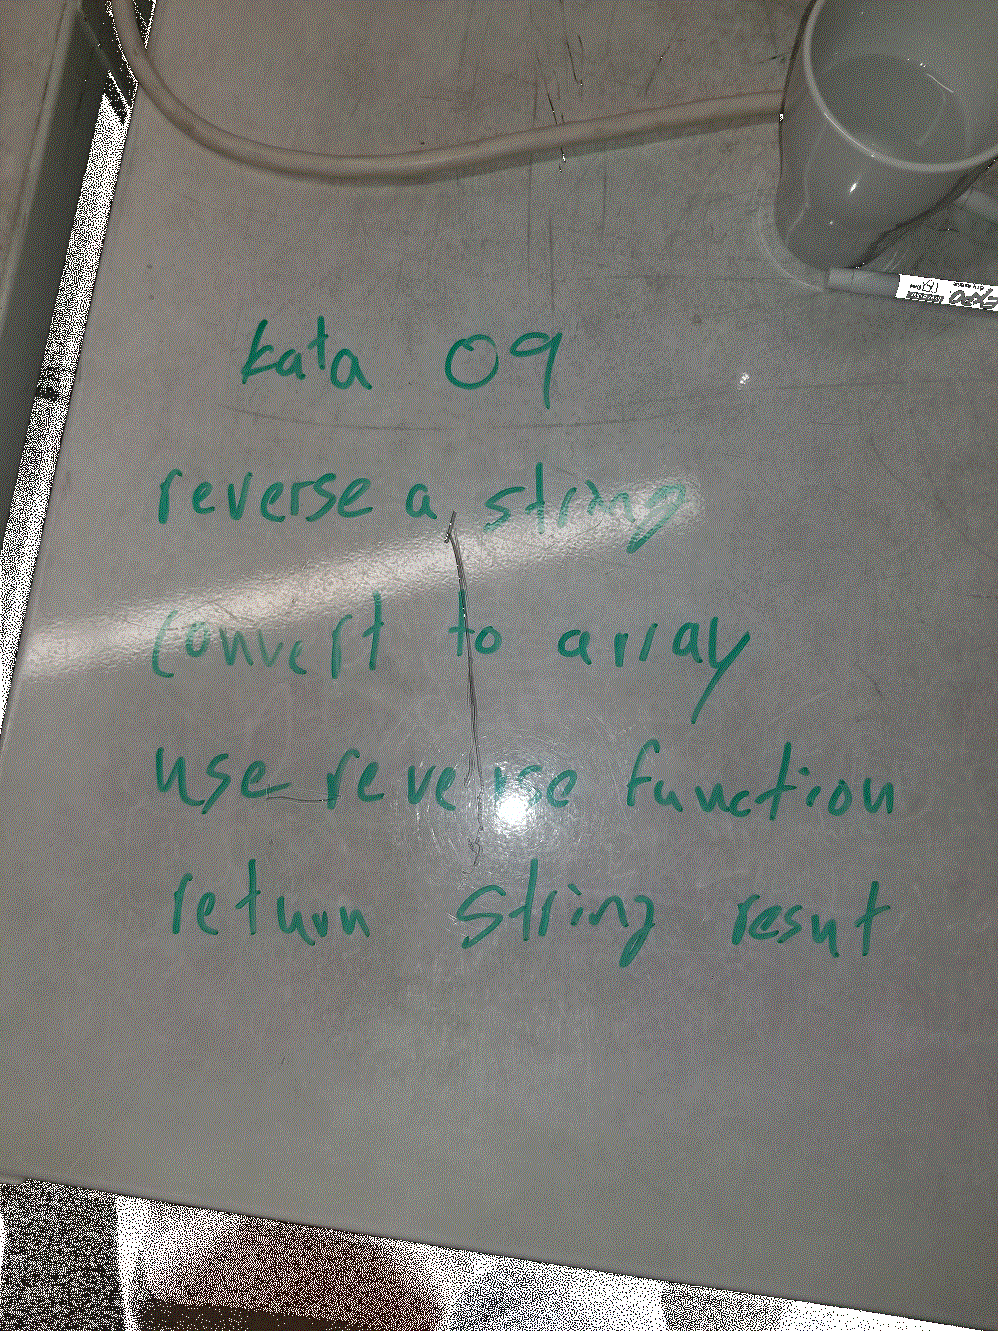 kata 09
reverse a string
convert to array
use reverse function
return string resut
EXPO